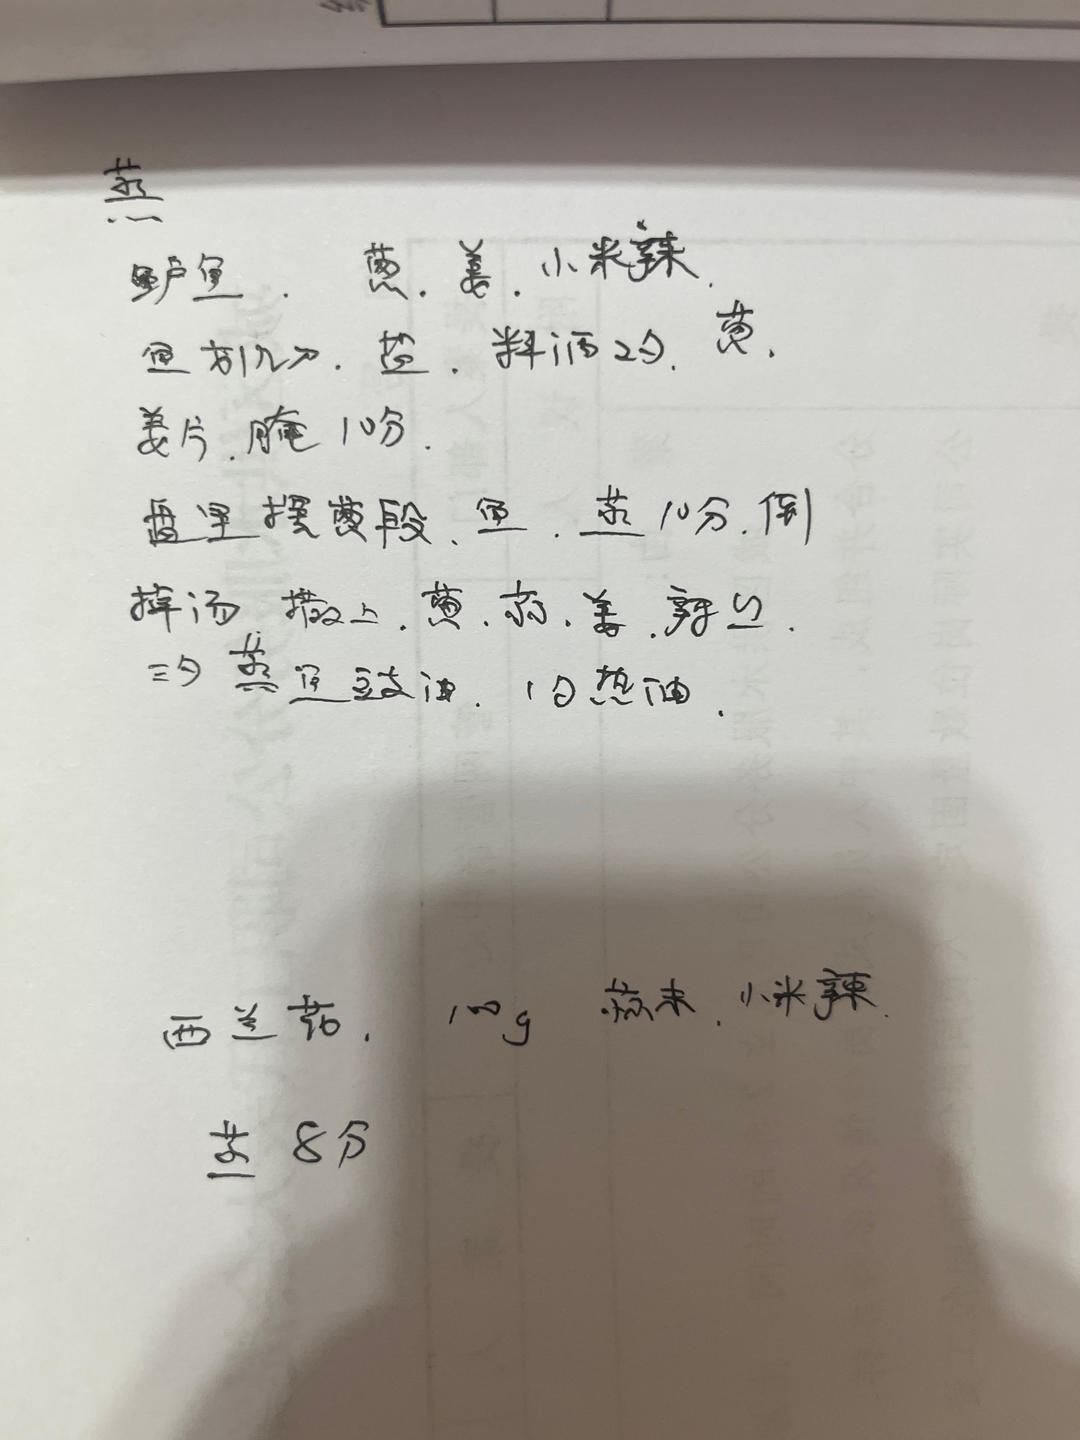 蒸
鲈鱼. 葱.姜.小米辣.
鱼划几刀.盐.料酒2勺.葱.
姜片.腌10分.
盘里摆葱段.鱼.蒸10分.倒
掉汤 撒上.葱.蒜.姜.辣丝.
三勺蒸鱼豉油.1勺热油.
西兰花. 100g 蒜末.小米辣.
蒸 8分